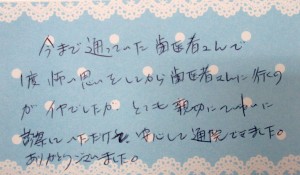 今まで通っていた歯医者さんで
1度怖い思いをしてから歯医者さんに行くの
がイヤでしたが とても親切にていねいに
診察していただけて、安心して通院できました。
ありがとうございました。